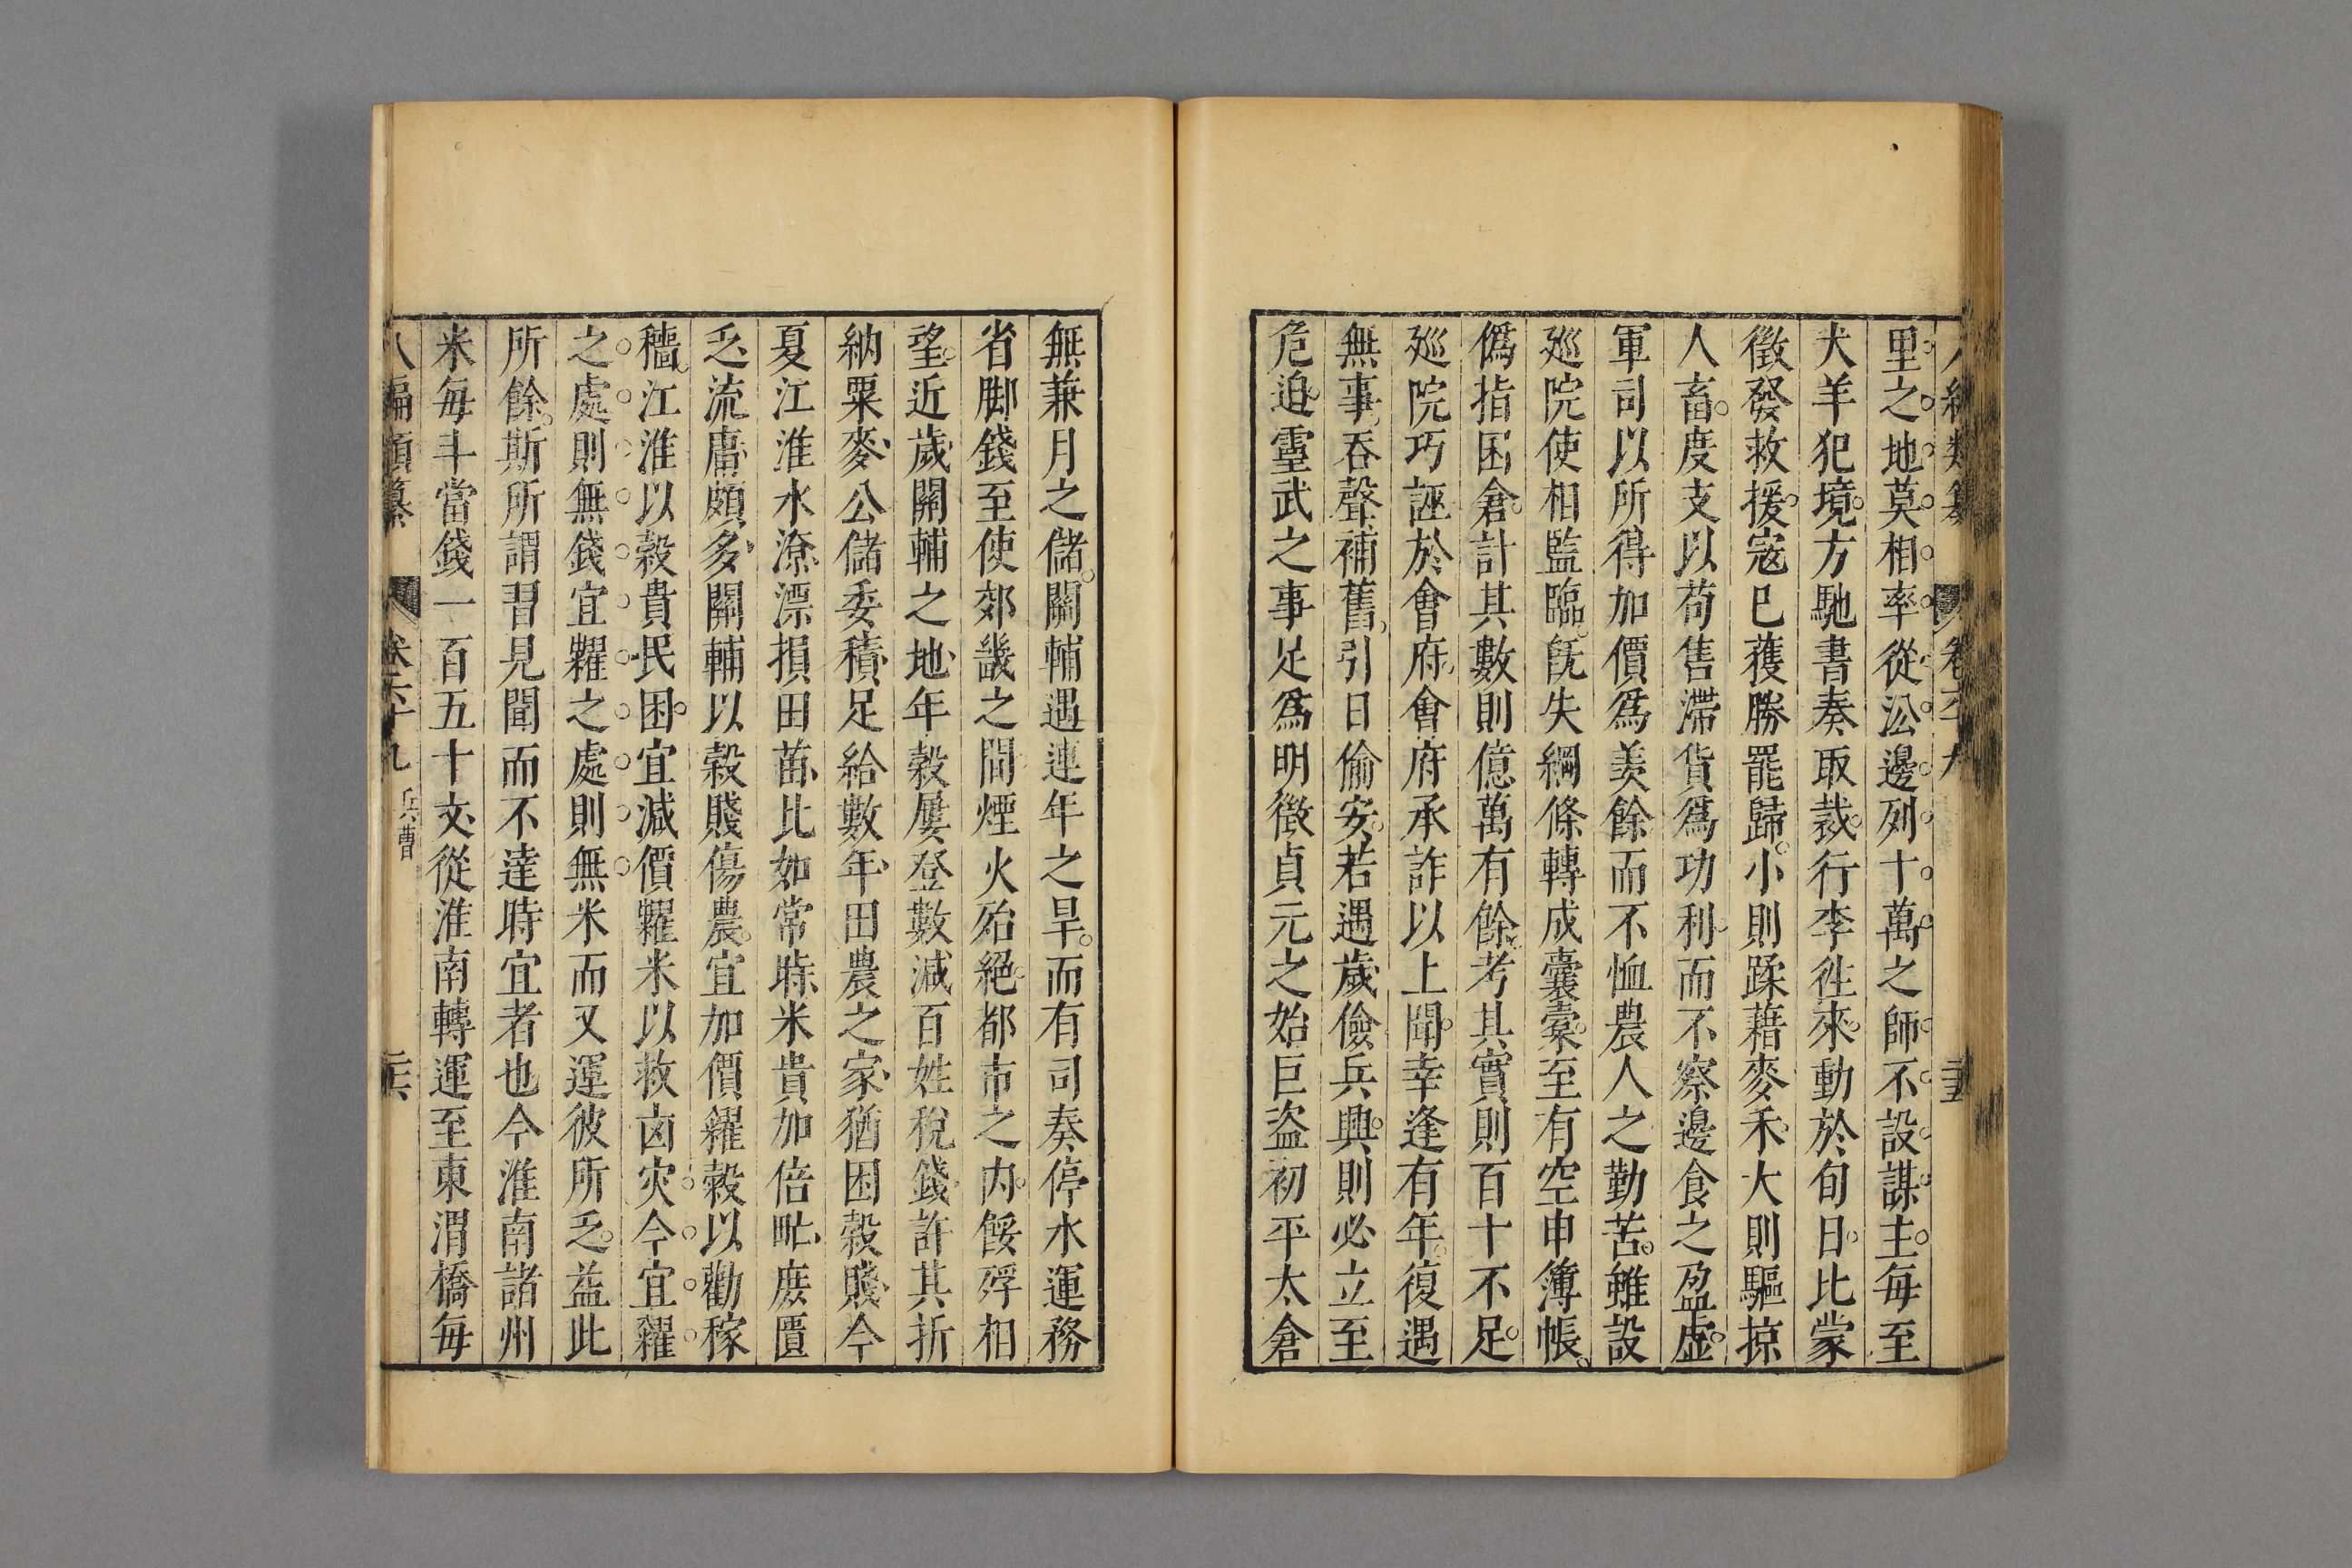 里之地莫相率從㳂邊列十萬之師不設謀主每至
犬羊犯境方馳書奏取裁行李徃來動於旬日比蒙
徵發救援寇巳獲勝罷歸小則蹂藉麥禾大則驅掠
人畜度支以苟售滯貨爲功利而不察邊食之盈虛
軍司以所得加價爲羨餘而不恤農人之勤苦雖設
廵院使相監臨旣失綱條轉成囊橐至有空申簿帳
僞指囷倉計其數則億萬有餘考其實則百十不足
廵院巧誣於會府會府承詐以上聞幸逢有年復遇
無事吞聲補舊引日偷安若遇歲儉兵興則必立至
危迫靈武之事足爲明徵貞元之始巨盜初平太倉
無兼月之儲關輔遇連年之旱而有司奏停水運務
省脚錢至使郊畿之間煙火殆絕都市之内餒殍相
望近歲關輔之地年穀屢登數減百姓稅錢許其折
納粟麥公儲委積足給數年田農之家猶困穀賤今
夏江淮水潦漂損田苗比如常時米貴加倍甿庶匱
乏流庸頗多關輔以穀賤傷農宜加價糴穀以勸稼
穡江淮以穀貴民困宜減價糶米以救凶灾今宜糴
之處則無錢宜糶之處則無米而又運彼所乏益此
所餘斯所謂習見聞而不達時宜者也今淮南諸州
米每斗當錢一百五十文從淮南轉運至東渭橋每
八編類纂 卷六十九 兵曹 二十六